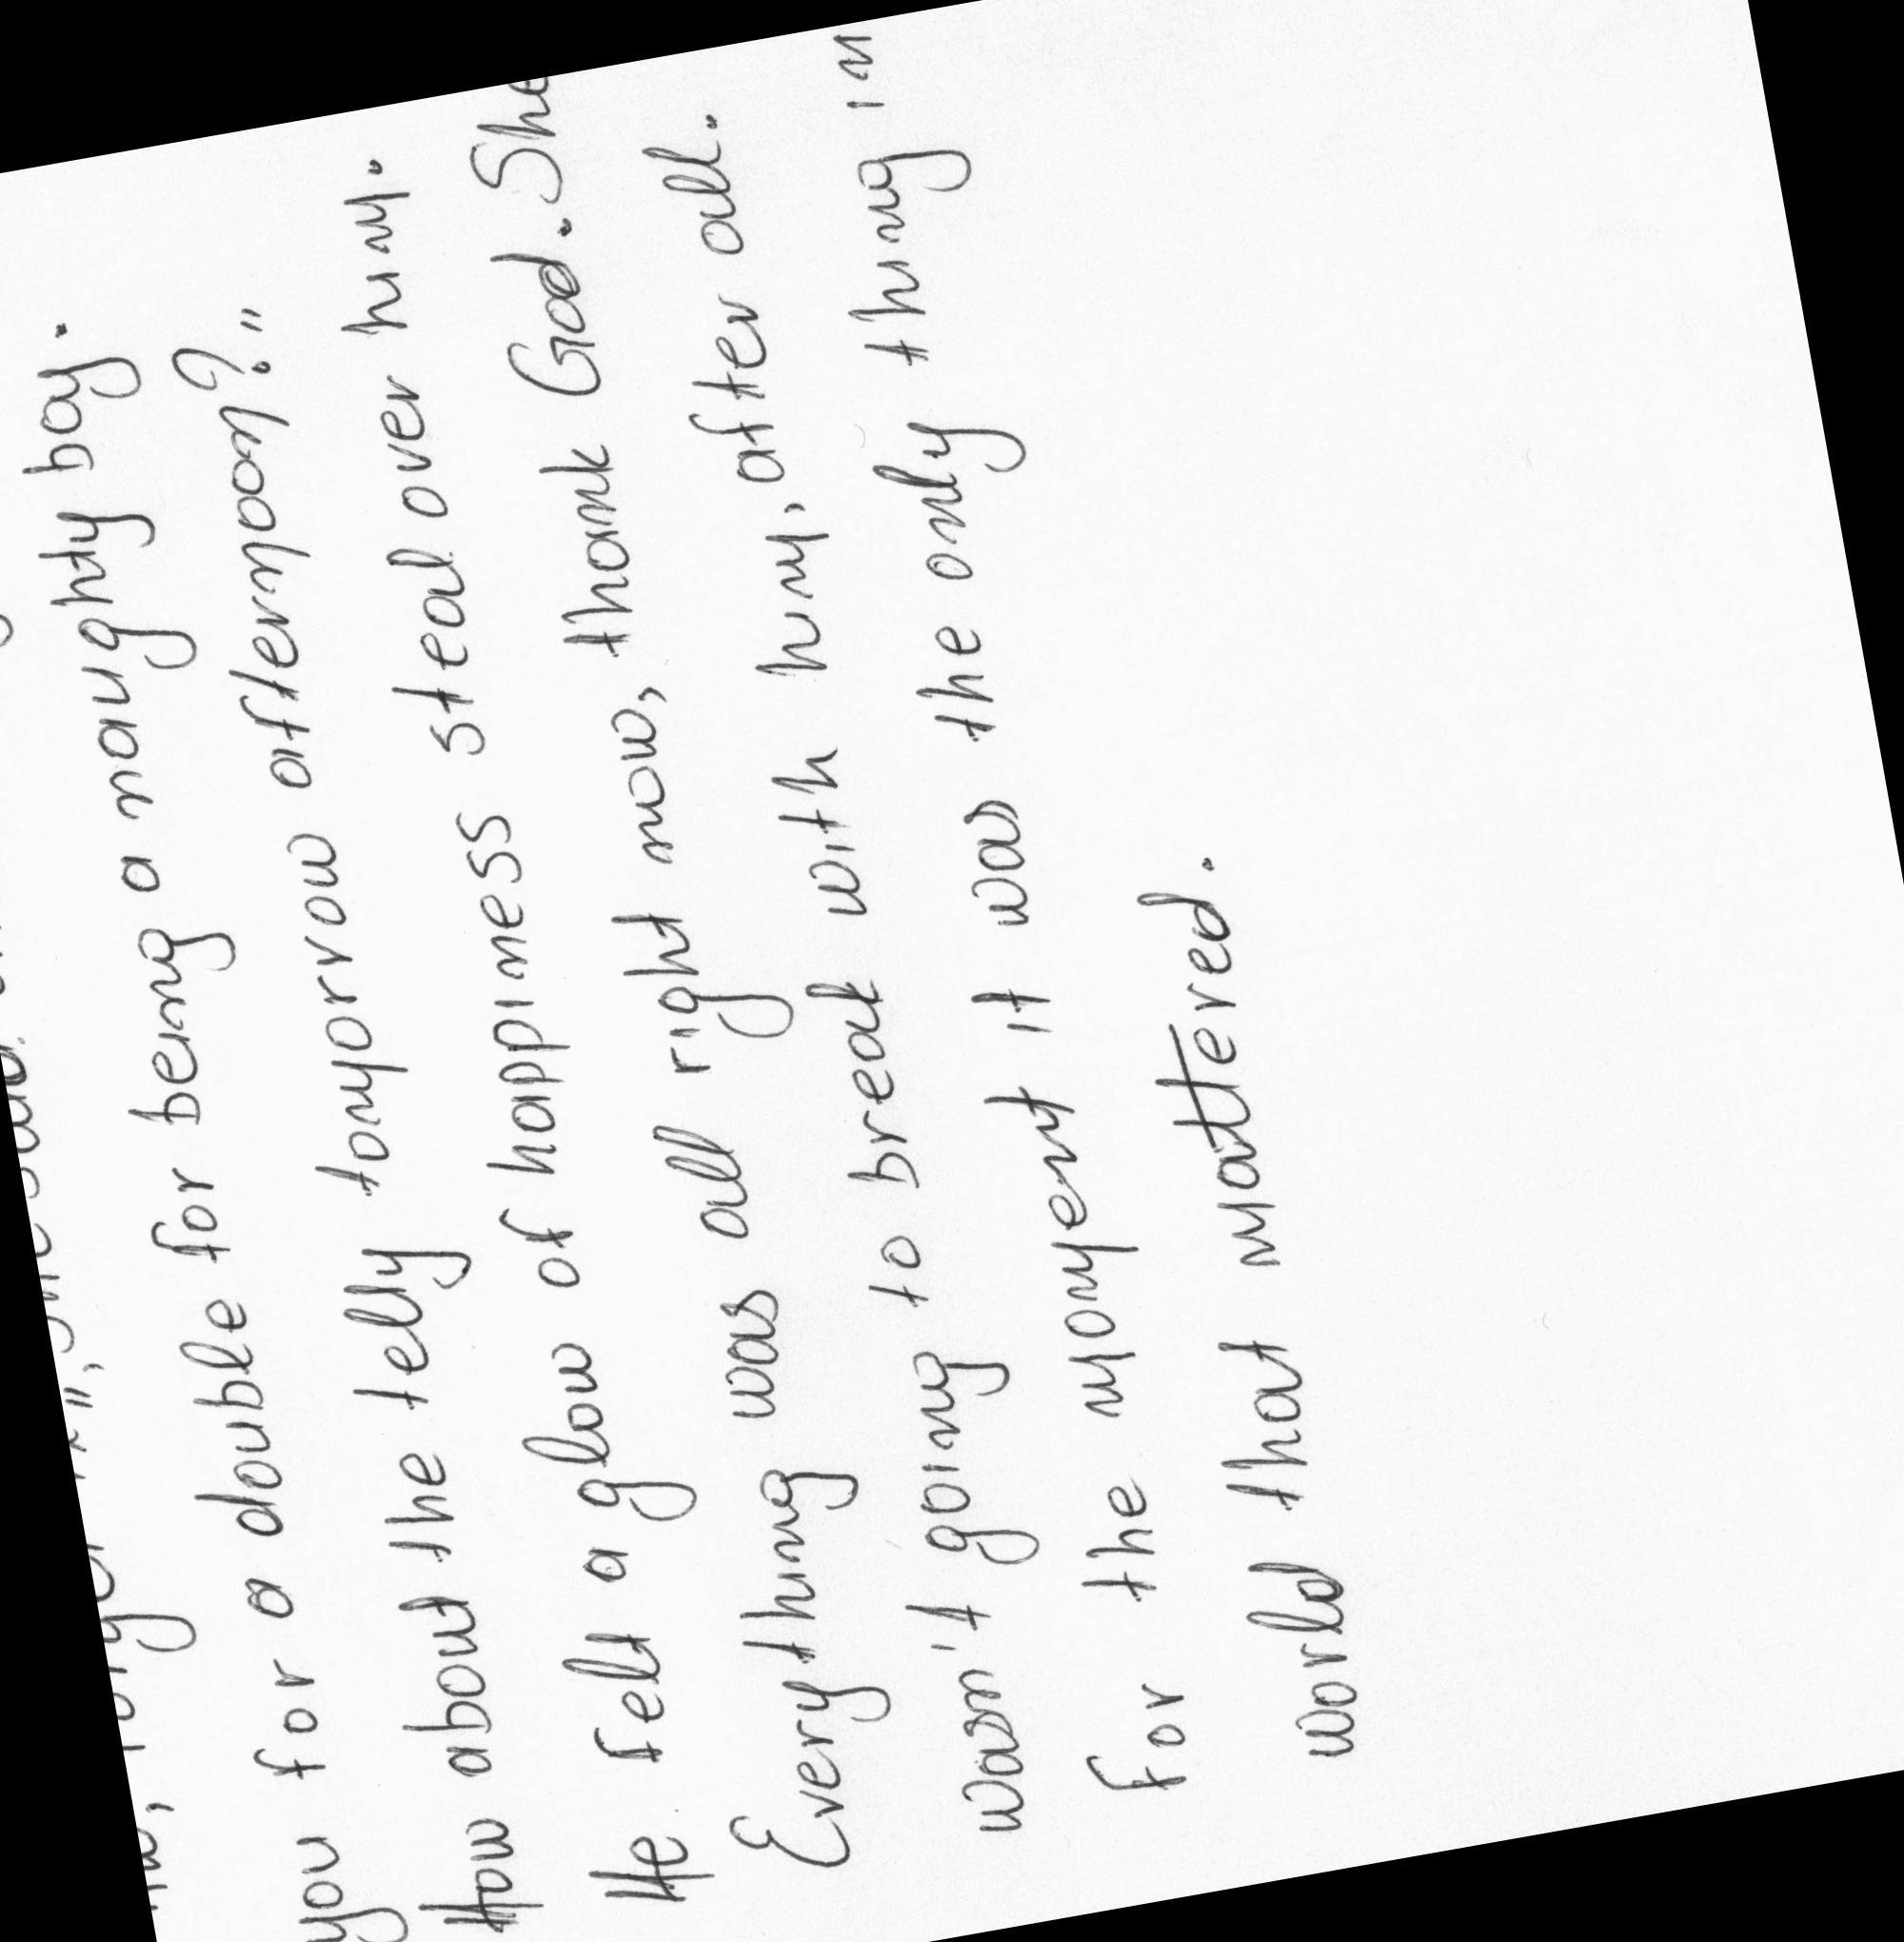 she said
you for a double for being a naughty boy.
How about the telly tomorrow afternoon?"
He felt a glow of happiness steal over him.
Everything was all right now, thank God. She
wasn't going to break with him, after all.
for the moment it was the only thing in
world that mattered.